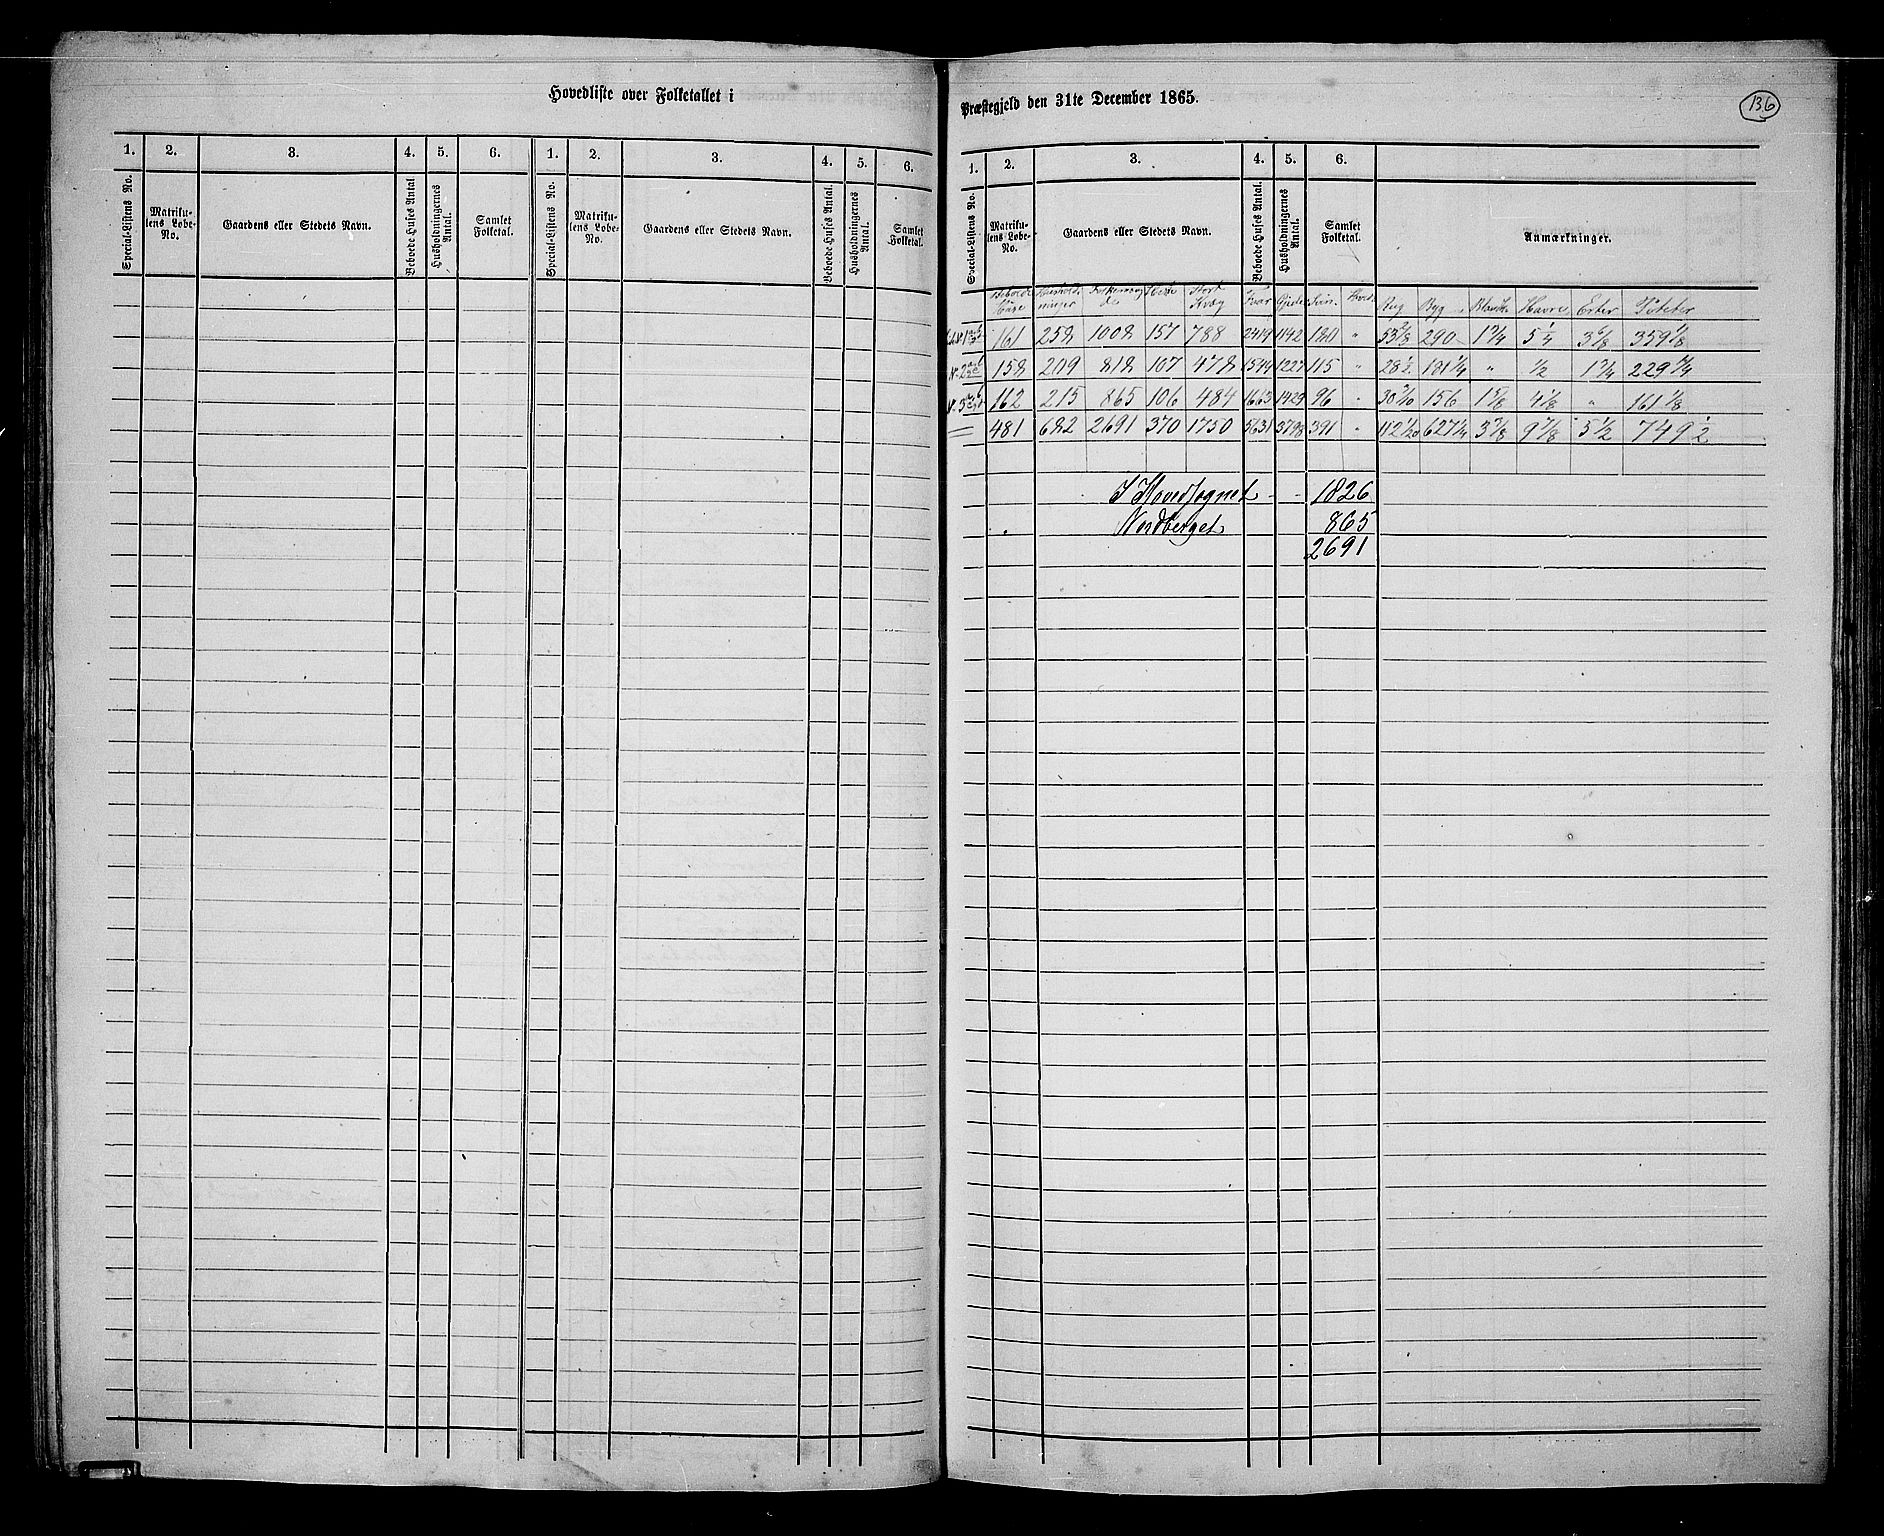 Hovedliste over Folketallet i
Præstegjeld den 31te December 1865.
136
1. 2. 3. 4. 5. 6. 1. 2. 3. 4. 5. 6.
Special-Listens No. Matrikulens Løbe-No. Gaardens eller Stedets Navn. Beboede Huses Antal Husholdningernes Antal. Samlet Folketal. Special-Listens No. Matrikulens Løbe-No. Gaardens eller Stedets Navn. Beboede Huses Antal. Husholdningernes Antal. Samlet Folketal.
1. 2. 3. 4. 5. 6.
Special-Listens No. Matrikulens Løbe-No. Gaardens eller Stedets Navn. Beboede Huses Antal. Husholdningernes Antal. Samlet Folketal. Anmærkninger.
Heste Stort Kvæg Faar Svin Rug Byg Havre Erter Poteter
161 252 1002 157 788 2419 1142 180 " 53 3/8 290 1 3/4 5 1/4 3 6/8 359 1/8
158 209 818 107 478 1549 1227 115 " 181 1/4 " 1/2 1 3/4 229 1/4
162 215 865 106 484 1663 1429 96 " 156 1 5/8 4 1/8 " 161 1/8
481 682 2691 370 1750 5631 3798 391 " 112 1/20 627 1/4 3 3/8 9 7/8 5 1/2 749 1/2
I Hovedsognet - - 1826
Nordberget 865
2691